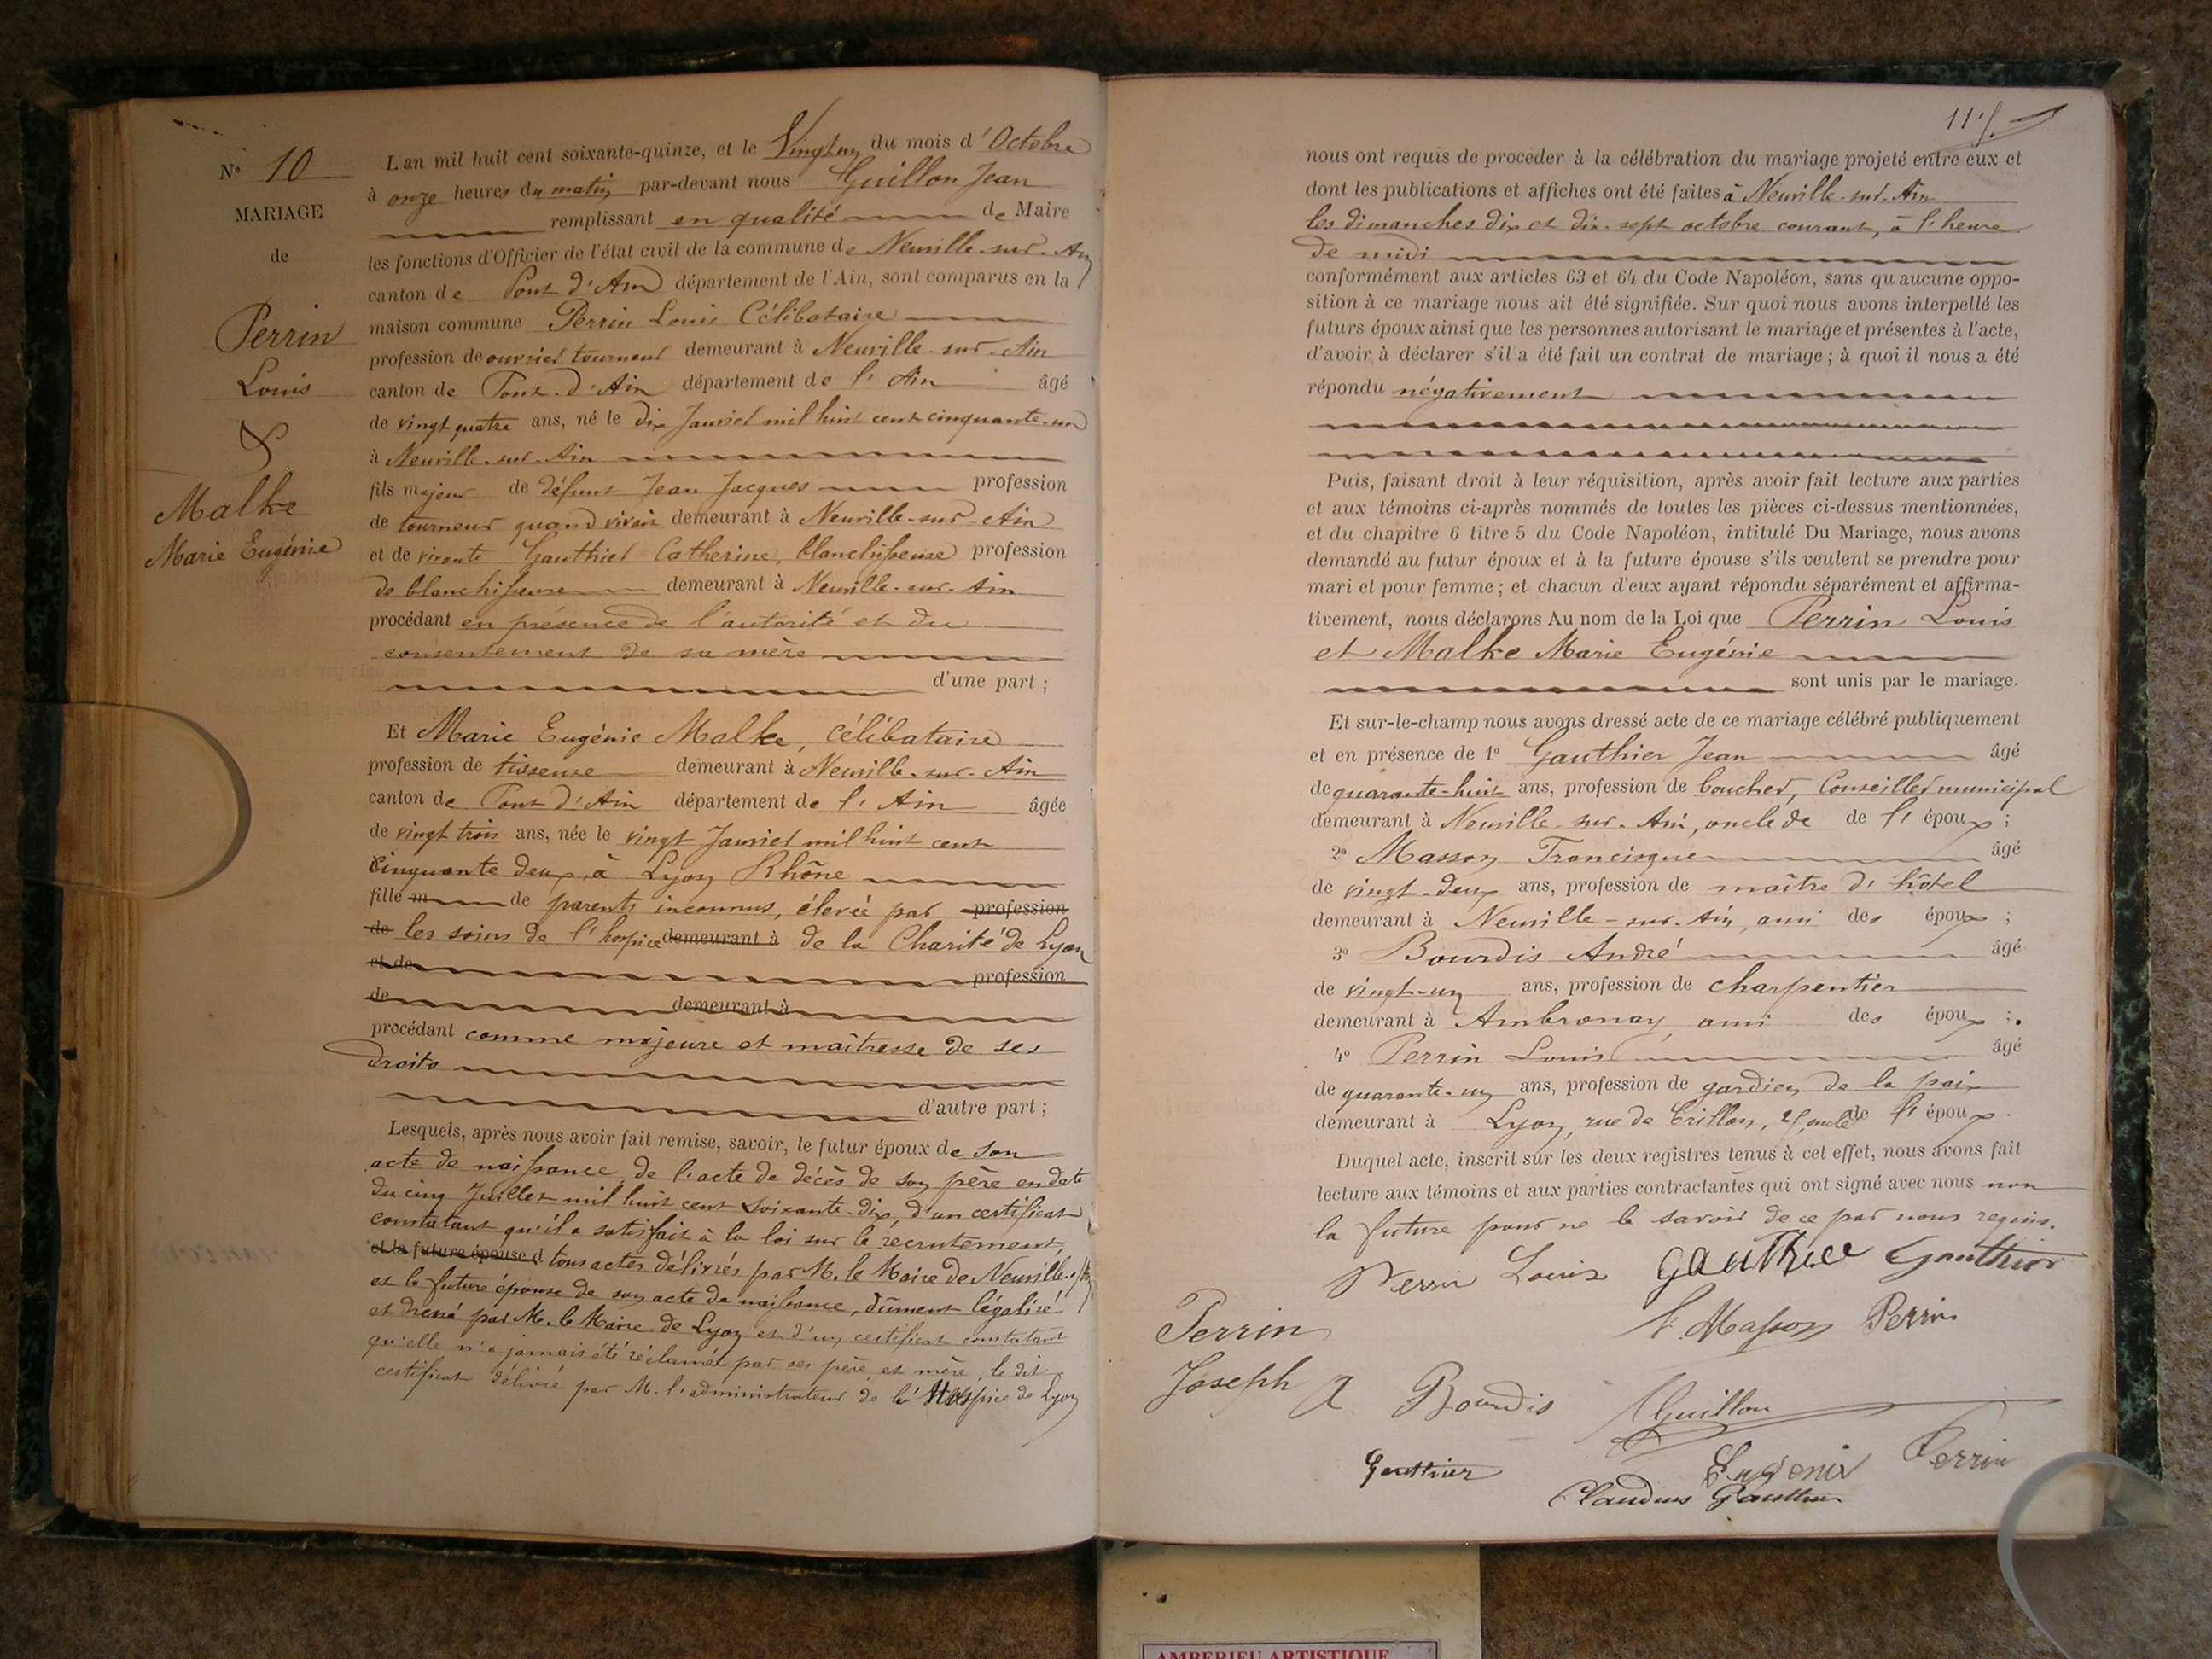 N° 10
MARIAGE
de
Perrin
Louis
&
Malke
Marie Eugénie
L'an mil huit cent soixante-quinze, et le Vingt un du mois d'Octobre
à onze heures du matin par-devant nous Guillon Jean
remplissant en qualité de Maire
les fonctions d'Officier de l'état civil de la commune de Neuville-sur-Ain
canton de Pont d'Ain département de l'Ain, sont comparus en la
maison commune Perrin Louis Célibataire
profession de ouvrier tourneur demeurant à Neuville-sur-Ain
canton de Pont-d'Ain département de l'Ain âgé
de vingt quatre ans, né le dix Janvier mil huit cent cinquante-un
à Neuville-sur-Ain
fils majeur de défunt Jean Jacques profession
de tourneur quand vivait demeurant à Neuville-sur-Ain
et de vivante Gauthier Catherine, blanchisseuse profession
de blanchisseuse demeurant à Neuville-sur-Ain
procédant en présence de l'autorité et du
consentement de sa mère
d'une part ;
Et Marie Eugénie Malke, célibataire
profession de tisseuse demeurant à Neuville-sur-Ain
canton de Pont d'Ain département de l'Ain âgée
de vingt trois ans, née le vingt Janvier mil huit cent
cinquante deux, à Lyon Rhône
fille m de parents inconnus, élevée par profession
de les soins de l'hospice demeurant à de la Charité de Lyon
et de profession
de demeurant à
procédant comme majeure et maîtresse de ses
droits
d'autre part ;
Lesquels, après nous avoir fait remise, savoir, le futur époux de son
acte de naissance, de l'acte de décès de son père en date
du cinq Juillet mil huit cent soixante-dix, d'un certificat
constatant qu'il a satisfait à la loi sur le recrutement,
et la future épouse d tous actes délivrés par M. le Maire de Neuville s/Ain
et la future épouse de son acte de naissance, dûment légalisé
et dressé par M. le Maire de Lyon et d'un certificat constatant
qu'elle n'a jamais été réclamée par ses père et mère, le dit
certificat délivré par M. l'administrateur de l'Hospice de Lyon
115
nous ont requis de procéder à la célébration du mariage projeté entre eux et
dont les publications et affiches ont été faites à Neuville-sur-Ain
les dimanches dix et dix-sept octobre courant, à l'heure
de midi
conformément aux articles 63 et 64 du Code Napoléon, sans qu'aucune oppo-
sition à ce mariage nous ait été signifiée. Sur quoi nous avons interpellé les
futurs époux ainsi que les personnes autorisant le mariage et présentes à l'acte,
d'avoir à déclarer s'il a été fait un contrat de mariage ; à quoi il nous a été
répondu négativement
Puis, faisant droit à leur réquisition, après avoir fait lecture aux parties
et aux témoins ci-après nommés de toutes les pièces ci-dessus mentionnées,
et du chapitre 6 titre 5 du Code Napoléon, intitulé Du Mariage, nous avons
demandé au futur époux et à la future épouse s'ils veulent se prendre pour
mari et pour femme ; et chacun d'eux ayant répondu séparément et affirma-
tivement, nous déclarons Au nom de la Loi que Perrin Louis
et Malke Marie Eugénie
sont unis par le mariage.
Et sur-le-champ nous avons dressé acte de ce mariage célébré publiquement
et en présence de 1° Gauthier Jean âgé
de quarante-huit ans, profession de boucher, Conseiller municipal
demeurant à Neuville-sur-Ain, oncle de de l'époux ;
2° Masson Francisque âgé
de vingt-deux ans, profession de maître d'hôtel
demeurant à Neuville-sur-Ain, ami des époux ;
3° Bourdis André âgé
de vingt-un ans, profession de charpentier
demeurant à Ambronay, ami des époux ;
4° Perrin Louis âgé
de quarante-un ans, profession de gardien de la paix
demeurant à Lyon, rue de Crillon, 25, oncle de l'époux.
Duquel acte, inscrit sur les deux registres tenus à cet effet, nous avons fait
lecture aux témoins et aux parties contractantes qui ont signé avec nous non
la future pour ne le savoir de ce par nous requis.
Perrin Louis Gauthier Gauthier
Perrin F. Masson Perrin
Joseph A Bourdis Guillon
Gauthier Eugénie Perrin
Claudius Gauthier
AMBERIEU ARTISTIQUE